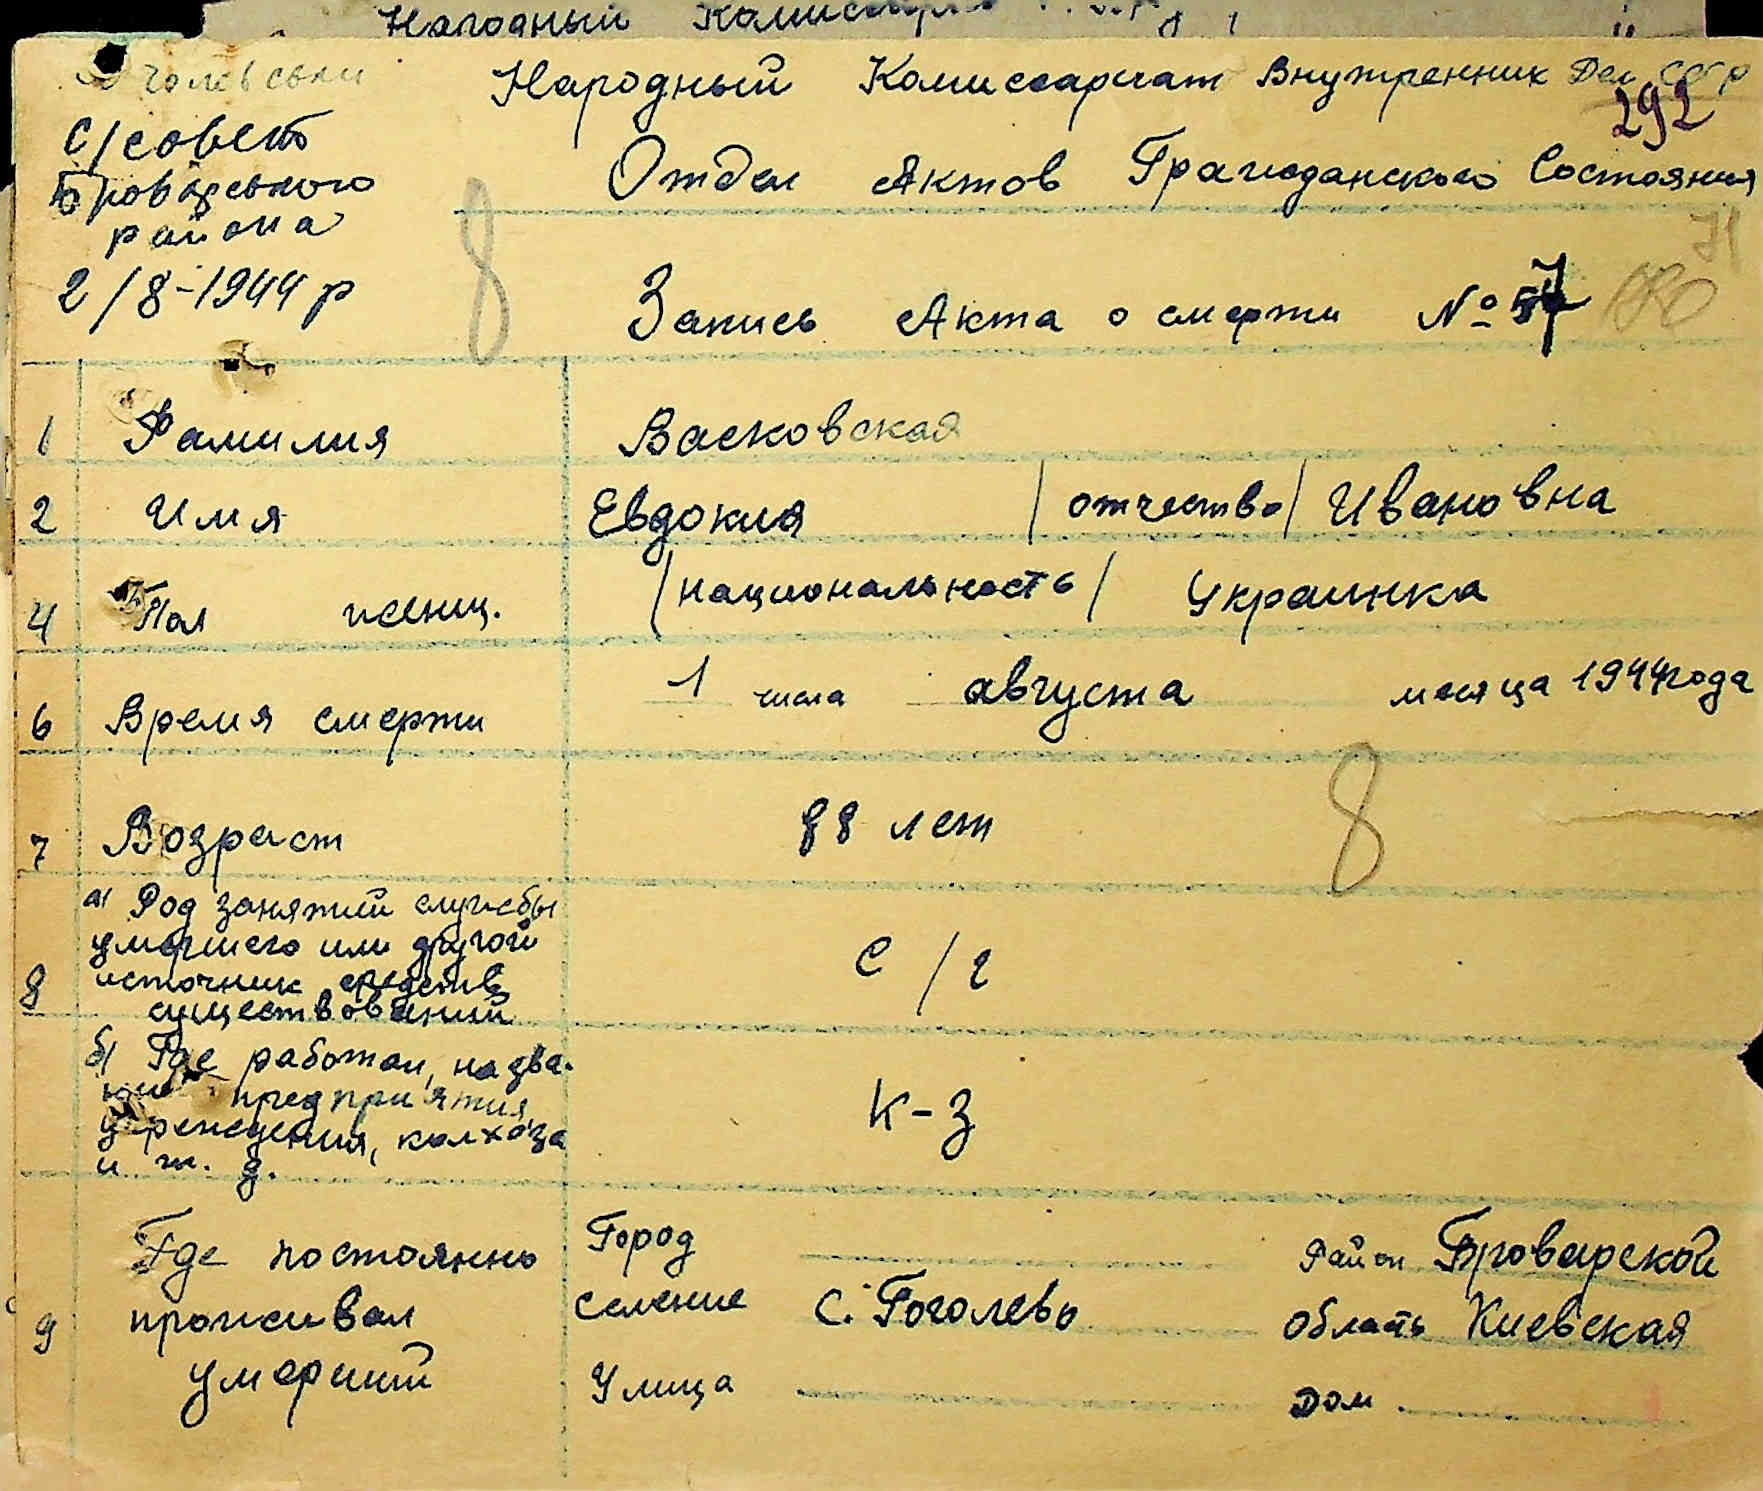 Народный
Народный Комиссариат Внутренних Дел СССР
292
С/совет
Броварського
района
2/8-1944 р
Отдел Актов Гражданского Состояния
8
71
Запись Акта о смерти №
1 Фамилия Васковская
2 Имя Евдокия /отчество/ Ивановна
4 Пол женщ. /национальность/ Украинка
6 Время смерти 1 числа августа месяца 1944 года
7 Возраст 88 лет 8
8 а) Род занятий службы
умершего или другой
источник средств
существований
с/г
б) Где работал, назва-
ние предприятия,
учреждения, колхоза
и т. д.
к-з
9 Где постоянно
проживал
умерший
Город Район Броварской
Селение с. Гоголево Область Киевская
Улица Дом